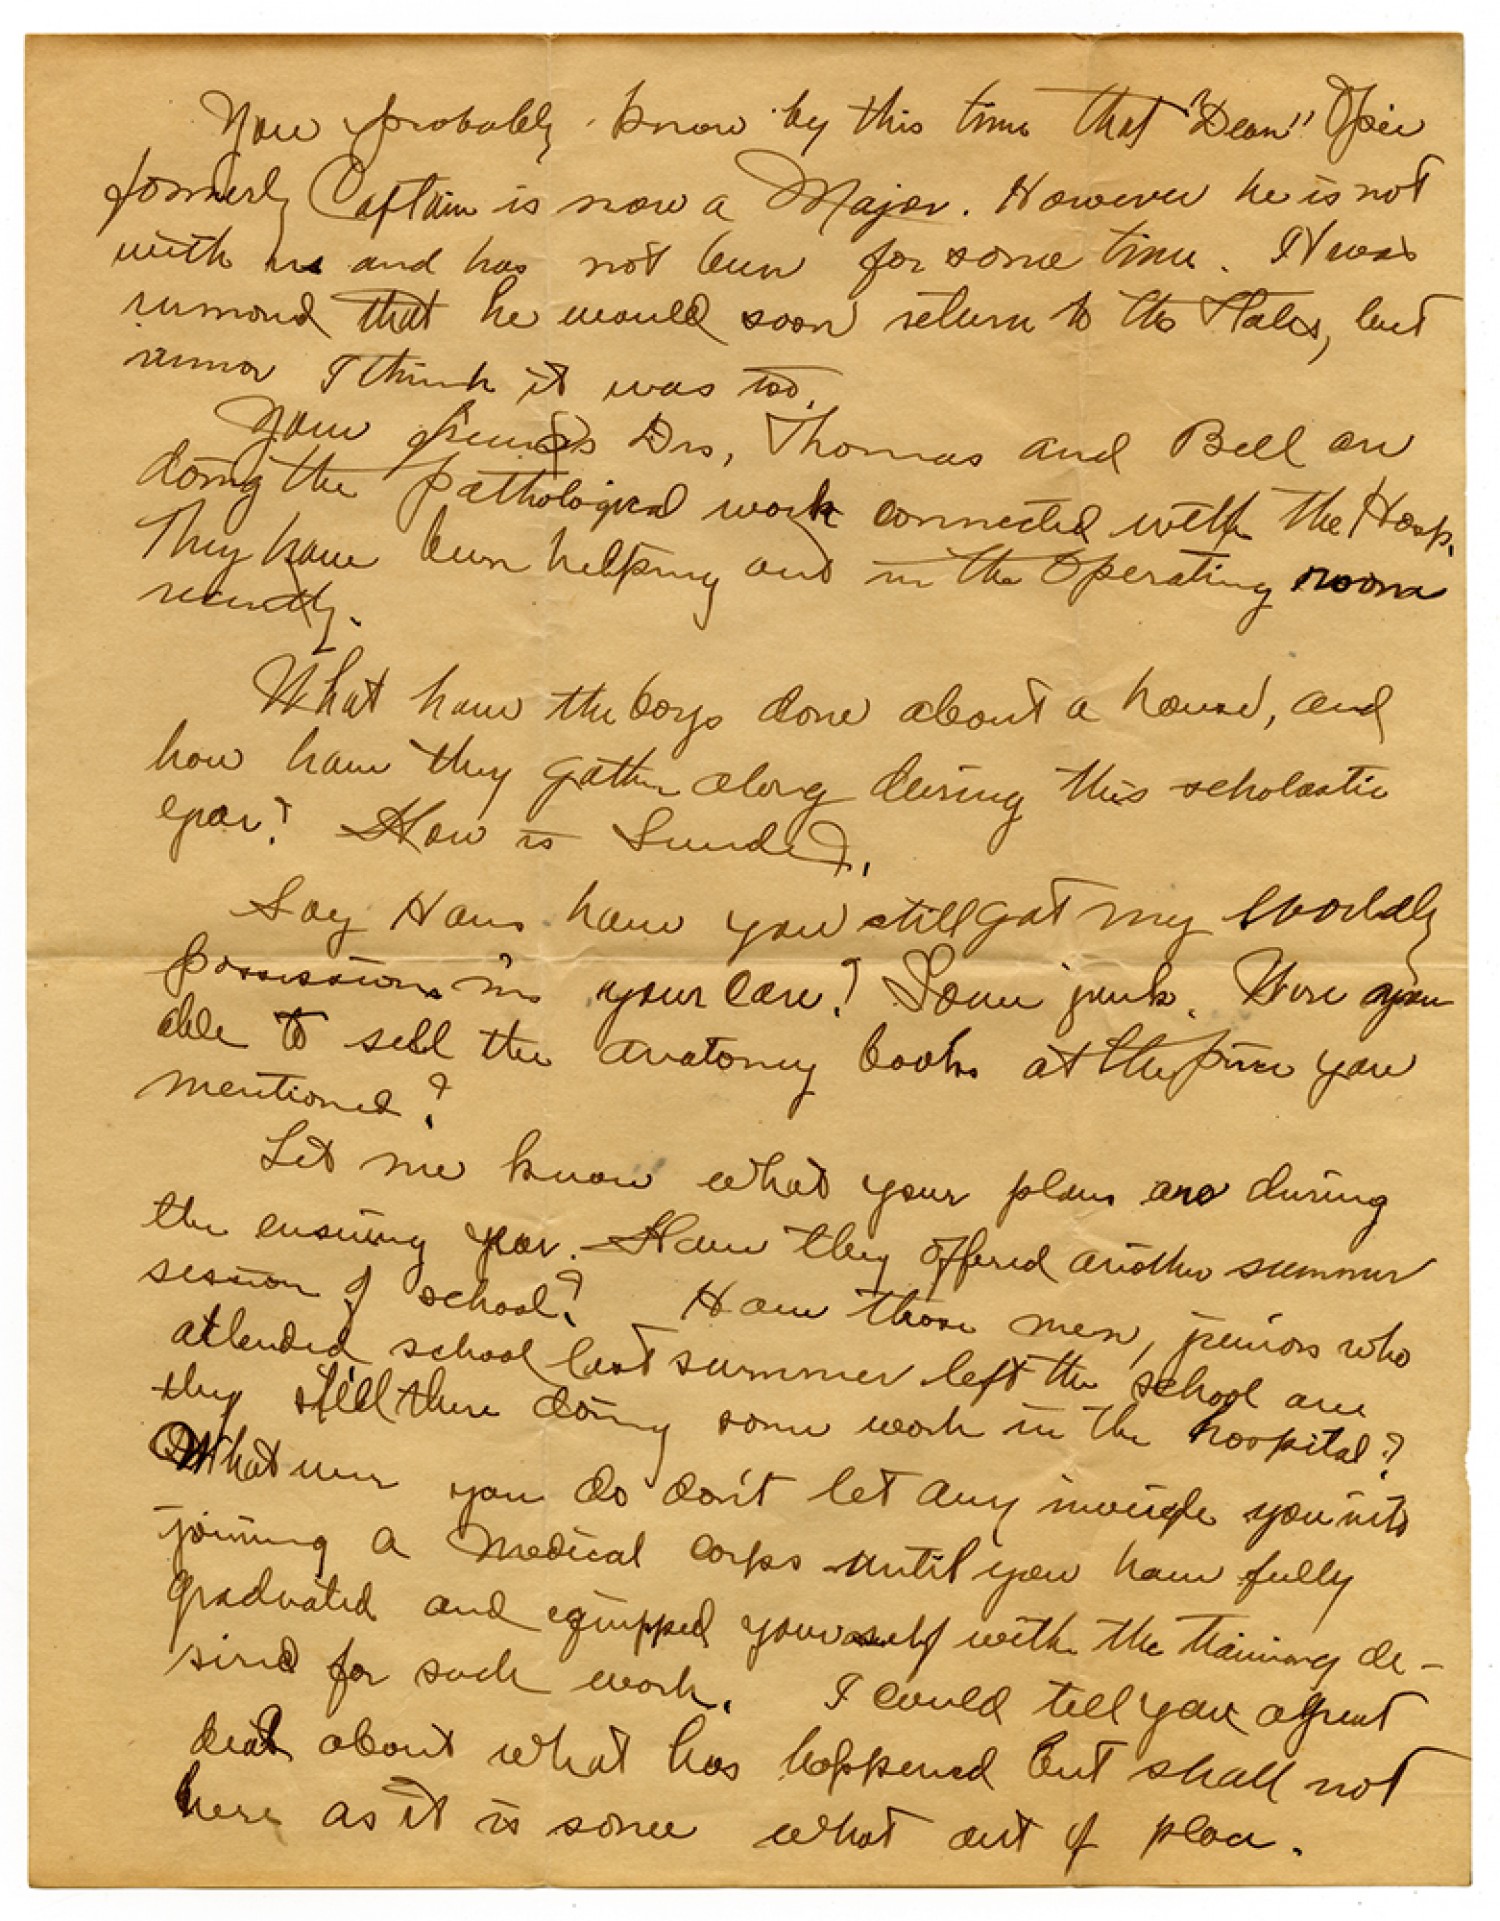 You probably know by this time that "Dean" Opie
formerly Captain is now a Major. However he is not
with us and has not been for some time. It was
rumord that he would soon return to the States, but
rumor I think it was too.
Your friends Drs, Thomas and Bell are
doing the pathological work connected with the Hosp.
They have been helping out in the operating room
recently.
What have the boys done about a house, and
how have they gotten along during this scholastic
year? How is
Say Hans have you still got my worldly
possessions in your care? Some junk. Were you
able to sell the anatomy books at the price you
mentioned?
Let me know what your plans are during
the ensuing year. Have they offered another summer
session of school? Have those men, juniors who
attended school last summer left the school are
they still there doing some work in the hospital?
Whatever you do don't let any inveigle you into
joining a medical corps until you have fully
graduated and equipped yourself with the training de-
sired for such work. I could tell you a great
deal about what has happened but shall not
here as it is some what out of place.